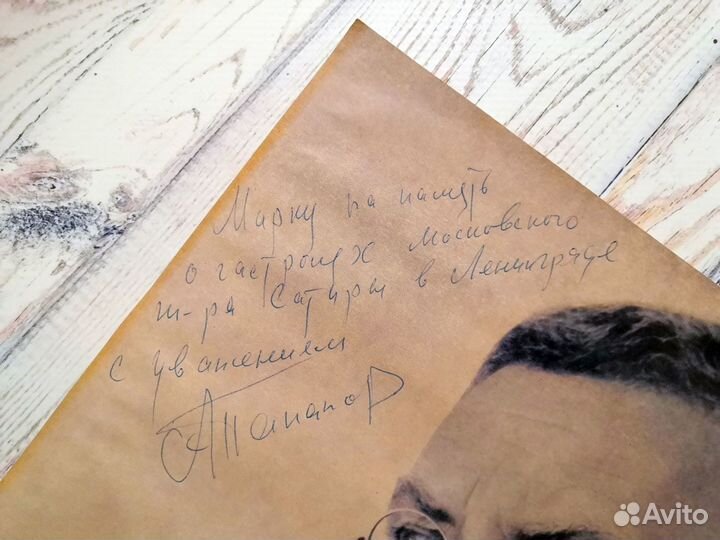 Марку на память
о гастролях Московского
т-ра Сатиры в Ленинграде
с уважением
АПапанов
Avito